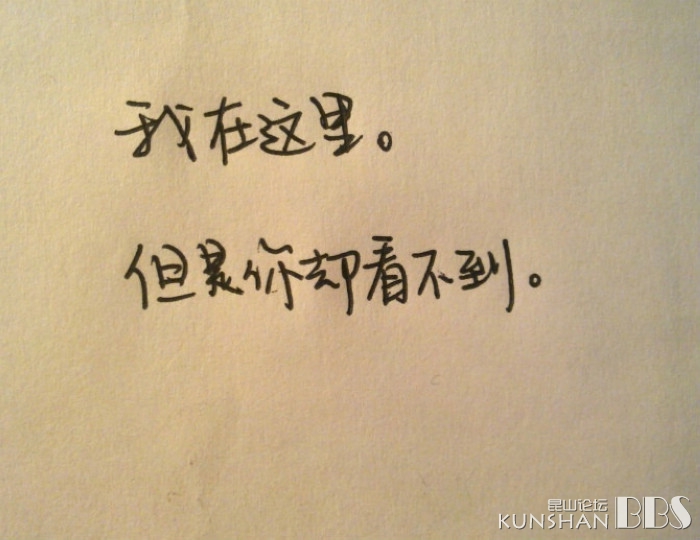 我在这里。
但是你却看不到。
昆山论坛
KUNSHAN BBS